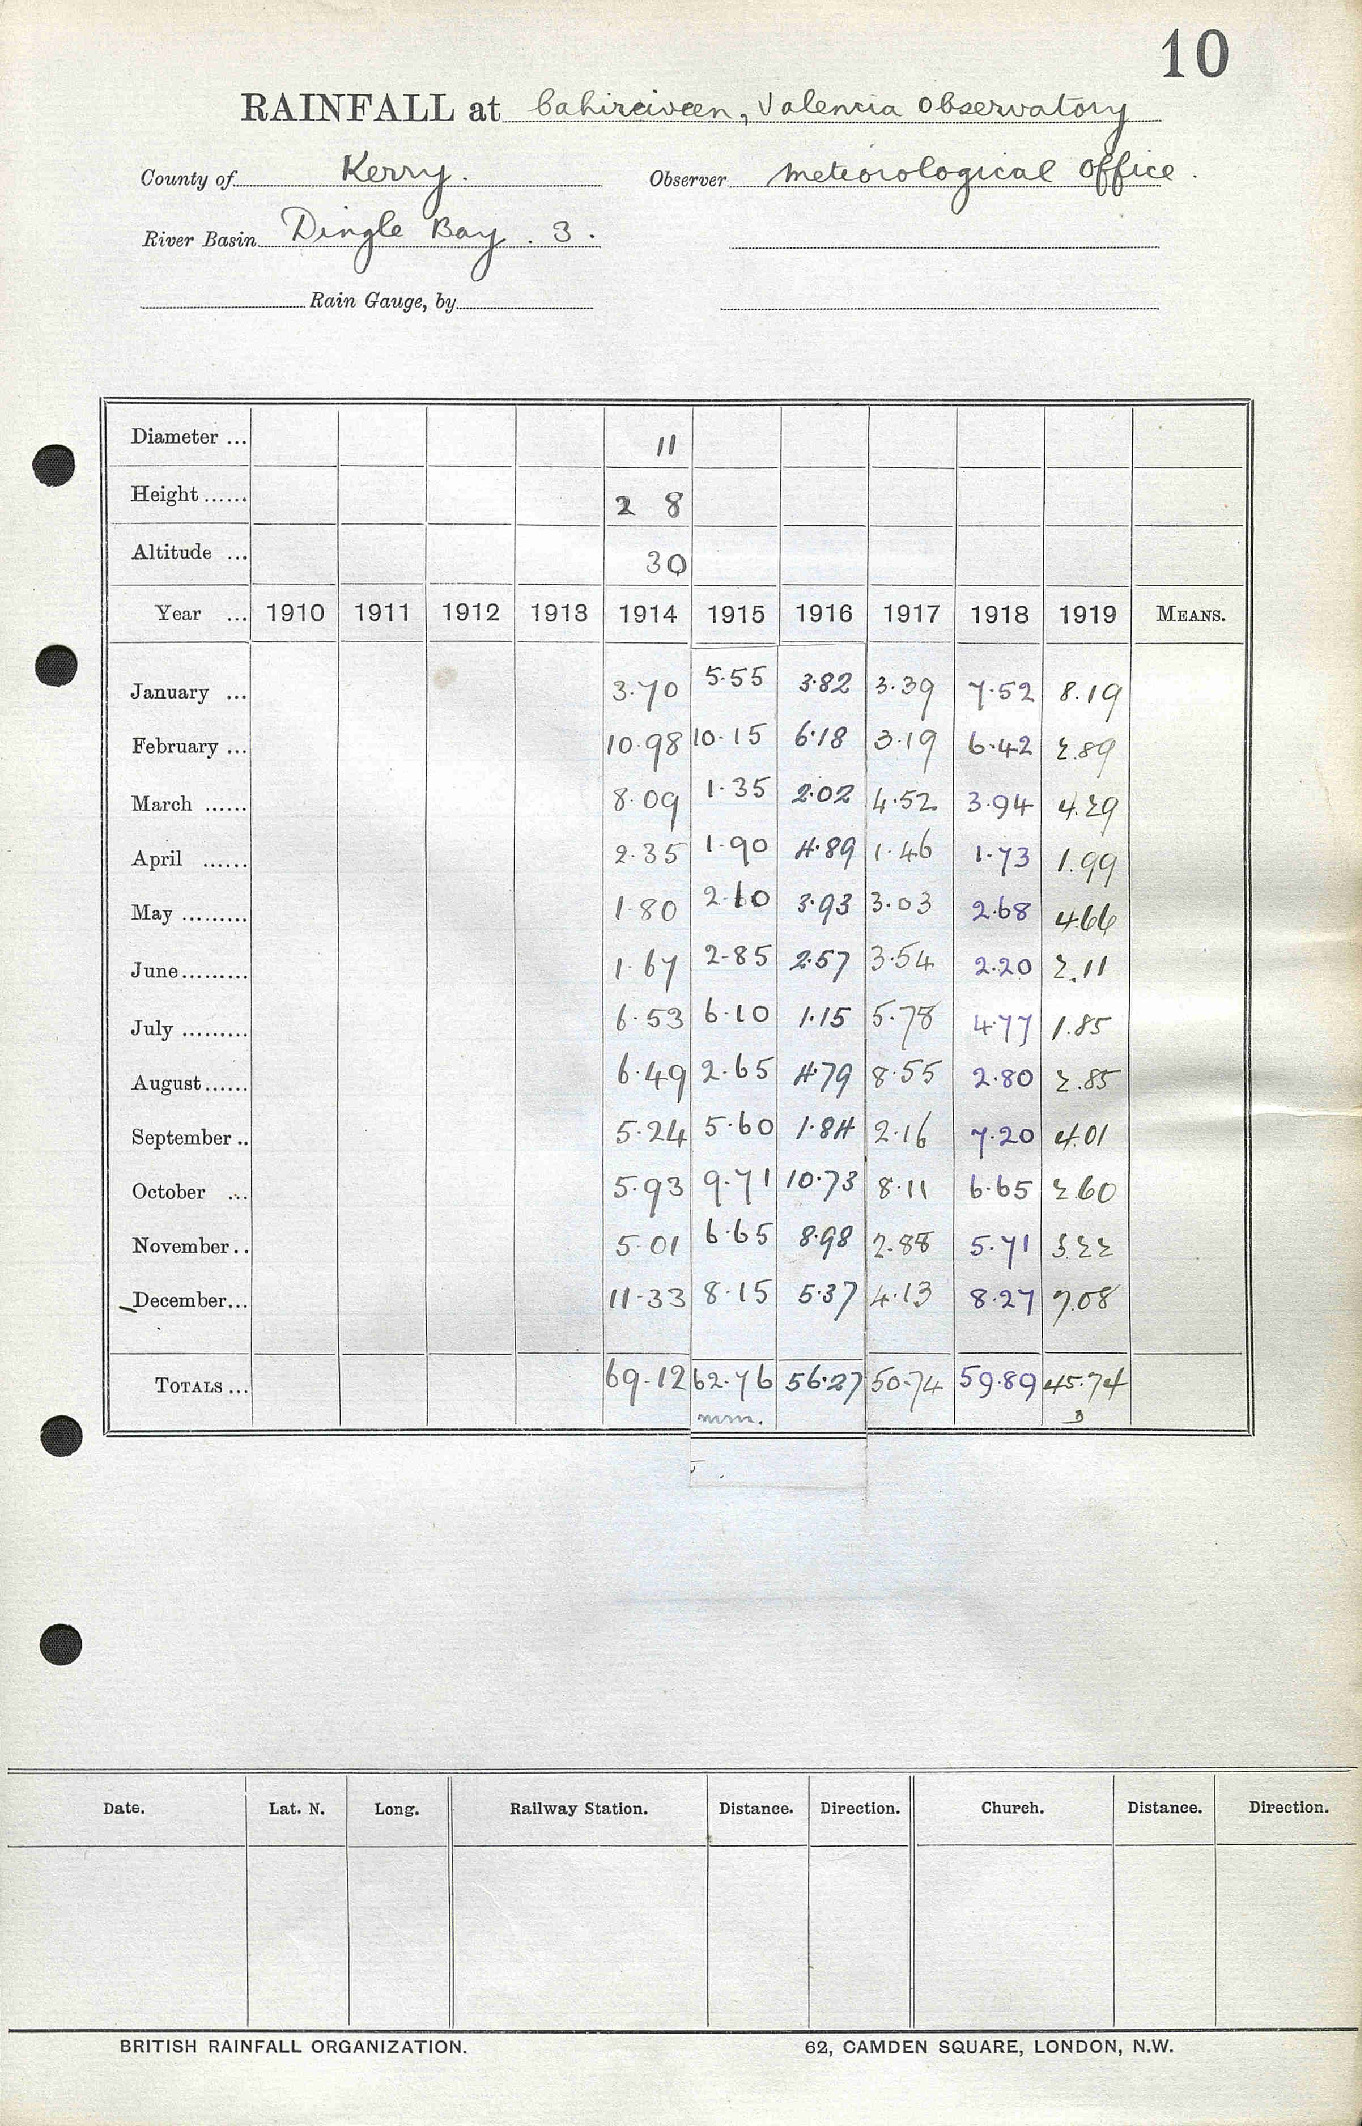 10
RAINFALL at Cahirciveen, Valencia Observatory
County of Kerry. Observer Meteorological Office.
River Basin Dingle Bay . 3 .
Rain Gauge, by
Diameter ... 11
Height ...... 2 8
Altitude ... 30
Year ... 1910 1911 1912 1913 1914 1915 1916 1917 1918 1919 MEANS.
January ... 3.70 5.55 3.82 3.39 7.52 8.19
February ... 10.98 10.15 6.18 3.19 6.42 2.89
March ...... 8.09 1.35 2.02 4.52 3.94 4.29
April ...... 2.35 1.90 4.89 1.46 1.73 1.99
May ......... 1.80 2.10 3.93 3.03 2.68 4.66
June......... 1.67 2.85 2.57 3.54 2.20 2.11
July ......... 6.53 6.10 1.15 5.78 4.77 1.85
August...... 6.49 2.65 4.79 8.55 2.80 2.85
September .. 5.24 5.60 1.84 2.16 7.20 4.01
October ... 5.93 9.71 10.73 8.11 6.65 2.60
November .. 5.01 6.65 8.98 2.88 5.71 3.22
December... 11.33 8.15 5.37 4.13 8.27 7.08
TOTALS ... 69.12 62.76 56.27 50.74 59.89 45.74
mm. 3
Date. Lat. N. Long. Railway Station. Distance. Direction. Church. Distance. Direction.
BRITISH RAINFALL ORGANIZATION. 62, CAMDEN SQUARE, LONDON, N.W.